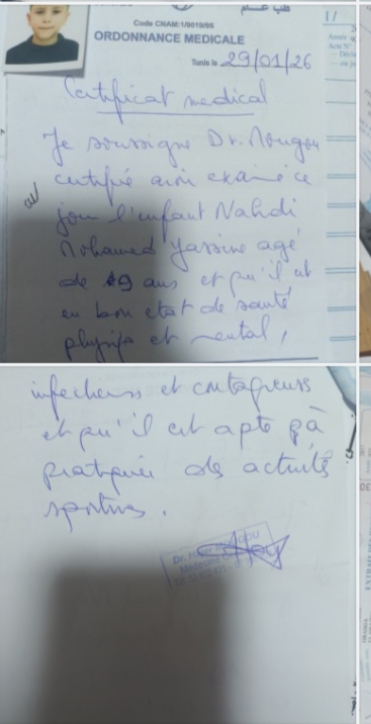 طب عـــام
Code CNAM:1/0019/95
ORDONNANCE MEDICALE
Tunis le 29/01/26
Certificat medical
Je soussigne Dr. Mougou
certifie avoir examiné ce
jour l'enfant Nahdi
Mohamed Yassine agé
de 9 ans et qu'il est
en bon etat de santé
physiq et mental,
infectieuses et contagieuses
et qu'il est apte à
pratiquer des activités
sportives.
Dr.
Médecine